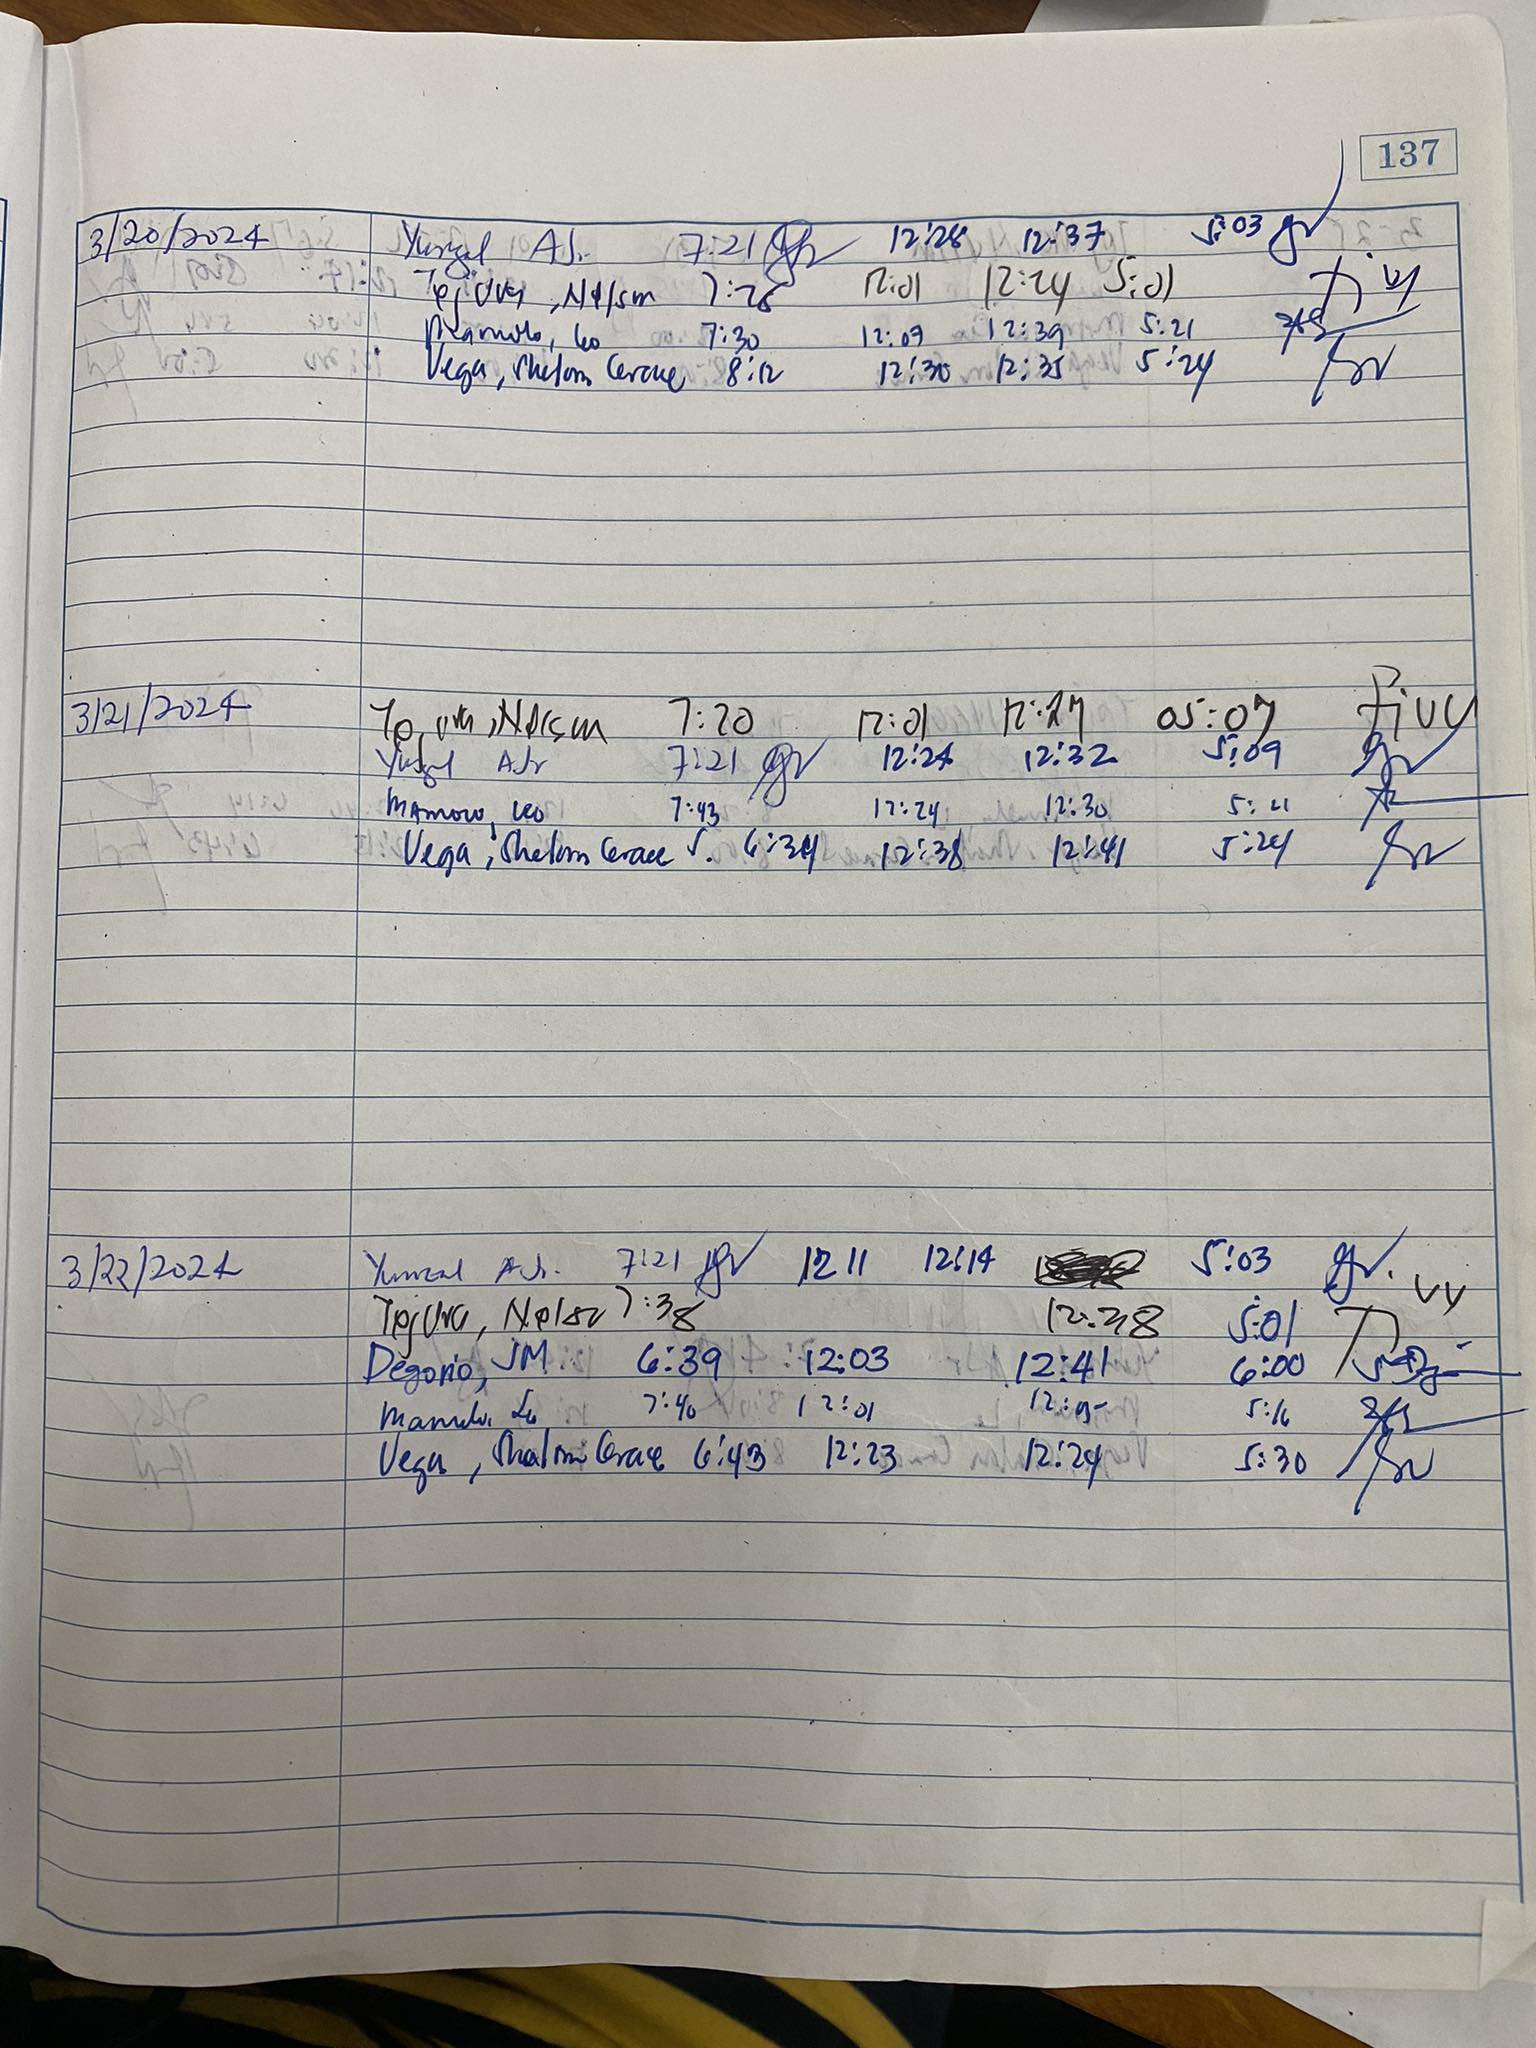 137
3/20/2024 Yungal A Jr. 7:21 12:28 12:37 5:03
Tejuva, Nelson 7:28 12:01 12:24 5:01
Mamolo, Leo 7:30 12:07 12:39 5:21
Vega, Shalom Grace 8:12 12:30 12:35 5:24
3/21/2024 Nelson 7:20 12:01 12:27 05:07
A Jr 7:21 12:24 12:32 5:09
Mamolo, Leo 7:43 12:24 12:30 5:21
Vega, Shalom Grace S. 6:34 12:38 12:41 5:24
3/22/2024 A Jr. 7:21 12 11 12:14 5:03
Tejuva, Nelson 7:38 12:38 5:01
Degorio, JM 6:39 12:03 12:41 6:00
Mamolo, Leo 7:40 12:01 12:05 5:16
Vega, Shalom Grace 6:43 12:23 12:24 5:30